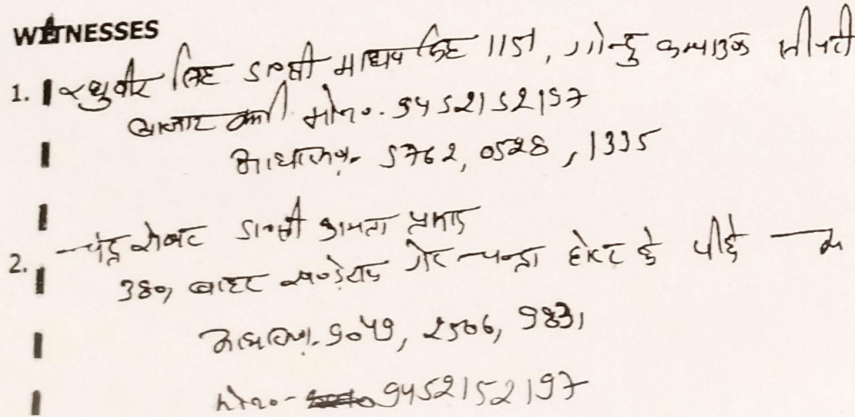 WITNESSES
1. रघुवीर सिंह S/o श्री माधव सिंह 115, गोन्दु कम्पाउंड सीपरी
बाजार झांसी मो०न०. 9452152197
आधार न०. 5762, 0528, 1335
2. चंद्र शेखर S/o श्री कामता प्रसाद
380, बाहर खण्डेराव गेट चन्द्रा होटल के पीछे
आधार न०. 9049, 2506, 9831
मो०न०- 9452152197